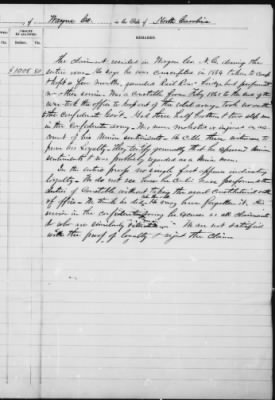 of Wayne Co. in the State of North Carolina
REMARKS.
The claimant resided in Wayne Co. N.C. during the
entire war. He says he was conscripted in 1864 taken to camp
& kept a few months guarded Rail Road bridge but performed
no other service. Was a Constable from Feby 1865 to the end of the
war took the office to keep out of the rebel army took no oath to
the Confederate Gov't. Had three half brothers & two step sons
in the Confederate army. Was never molested or injured on ac-
count of his Union sentiments. He calls three witnesses to
prove his loyalty. They testify generally that he expressed Union
sentiments & was probably regarded as a Union man.
In the entire proof no single fact appears indicating
loyalty. We do not see how he could have performed the
duties of Constable without taking the usual Constitutional oath
of office. We think he did he may have forgotten it. His
service in the confederate army he excuses as all claimants
do who are similarly situated. We are not satisfied
with the proof of loyalty & reject the claim
$1008.50